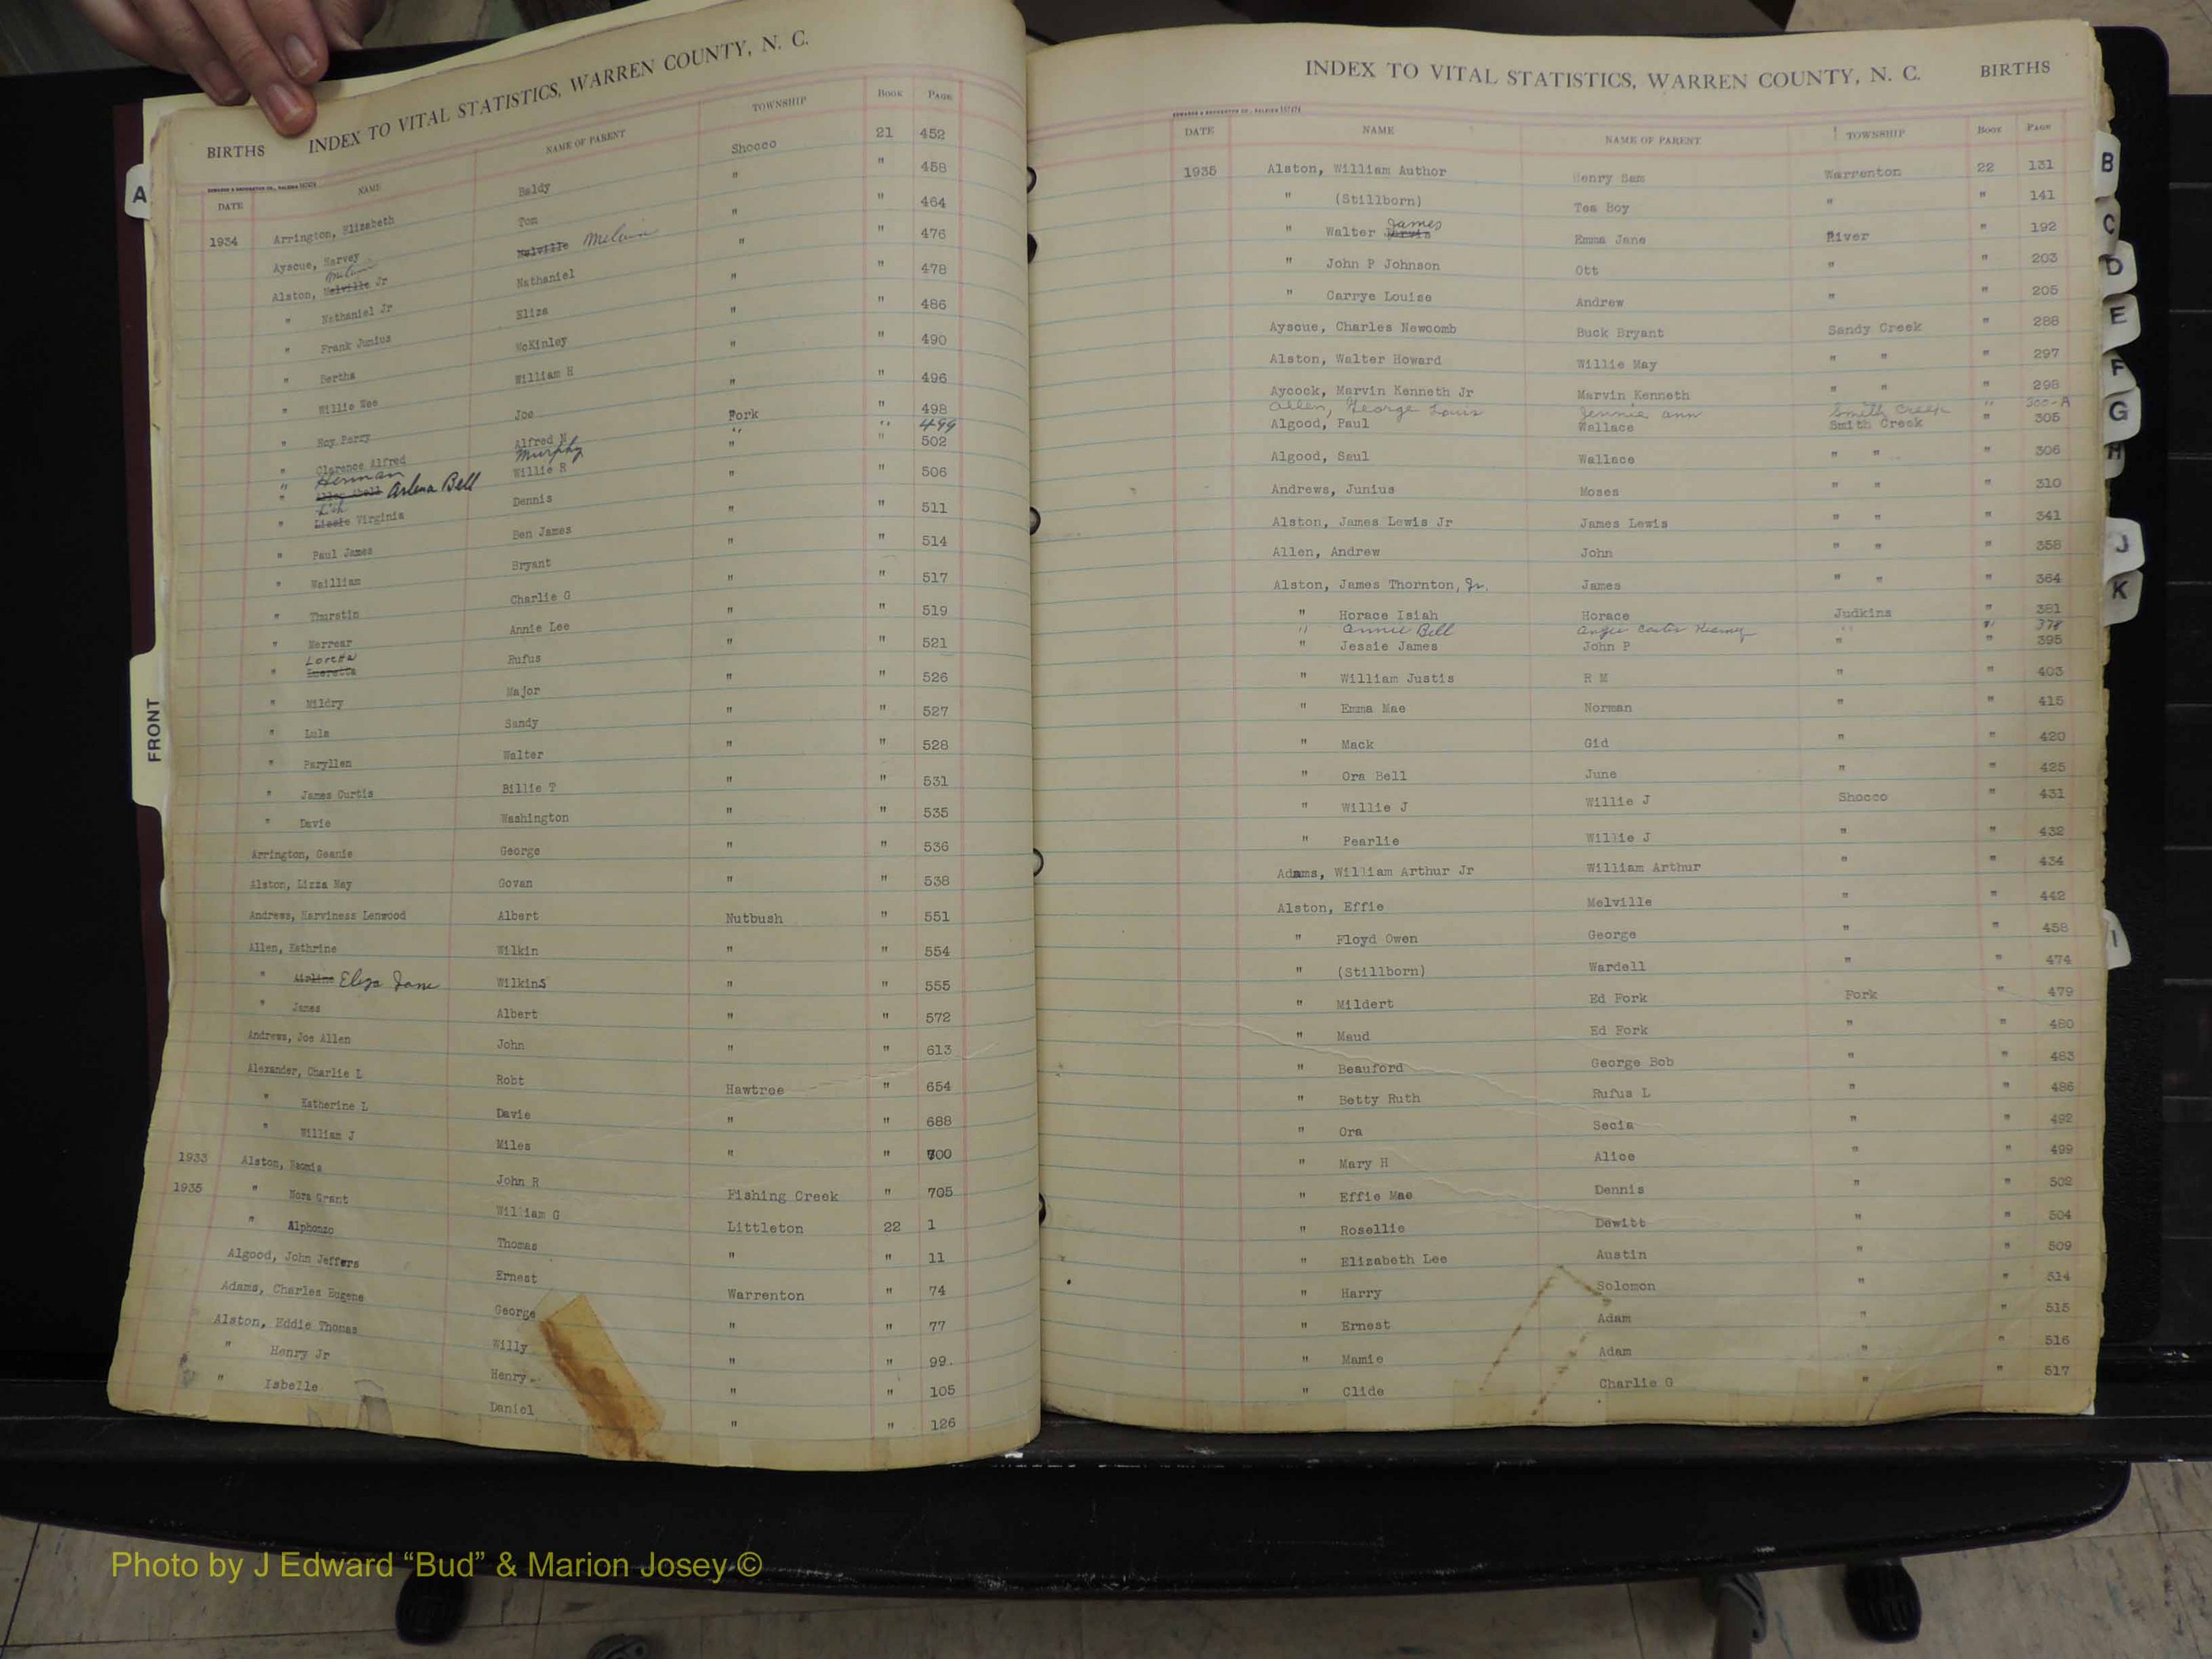 BIRTHS INDEX TO VITAL STATISTICS, WARREN COUNTY, N. C.
DATE NAME NAME OF PARENT TOWNSHIP BOOK PAGE
1934 Arrington, Elizabeth Baldy Shocco 21 452
Ayscue, Harvey Tom " " 458
Alston, Melville Melvin Jr Melville Melvin " " 464
" Nathaniel Jr Nathaniel " " 476
" Frank Junius Eliza " " 478
" Bertha McKinley " " 486
" Willie Mae William H " " 490
" Roy Perry Joe " " 496
" Clarence Alfred Alfred N Fork " 498
" Herman Murphy " " 499
" Arlena Bell Willie R " " 502
" Lizzie Virginia Dennis " " 506
" Paul James Ben James " " 511
" Wailliam Bryant " " 514
" Thurstin Charlie G " " 517
" Merrear Annie Lee " " 519
" Loretta Rufus " " 521
" Mildry Major " " 526
" Lula Sandy " " 527
" Paryllen Walter " " 528
" James Curtis Billie T " " 531
" Davie Washington " " 535
Arrington, Geanie George " " 536
Alston, Lizza May Govan " " 538
Andrews, Harviness Lenwood Albert Nutbush " 551
Allen, Kathrine Wilkin " " 554
" Airline Eliza Jane Wilkins " " 555
" James Albert " " 572
Andrews, Joe Allen John " " 613
Alexander, Charlie L Robt Hawtree " 654
" Katherine L Davie " " 688
" William J Miles " " 700
1933 Alston, Naomia John R Fishing Creek " 705
1935 " Nora Grant William G Littleton 22 1
" Alphonzo Thomas " " 11
Algood, John Jeffers Ernest Warrenton " 74
Adams, Charles Eugene George " " 77
Alston, Eddie Thomas Willy " " 99.
" Henry Jr Henry " " 105
" Isbelle Daniel " " 126
INDEX TO VITAL STATISTICS, WARREN COUNTY, N. C. BIRTHS
DATE NAME NAME OF PARENT TOWNSHIP BOOK PAGE
1935 Alston, William Author Henry Sam Warrenton 22 131
" (Stillborn) Tea Boy " " 141
" Walter Jarvis James Emma Jane River " 192
" John P Johnson Ott " " 203
" Carrye Louise Andrew " " 205
Ayscue, Charles Newcomb Buck Bryant Sandy Creek " 288
Alston, Walter Howard Willie May " " " 297
Aycock, Marvin Kenneth Jr Marvin Kenneth " " " 298
Allen, George Louis Jennie Ann Smith Creek " 300-A
Algood, Paul Wallace Smith Creek " 305
Algood, Saul Wallace " " " 306
Andrews, Junius Moses " " " 310
Alston, James Lewis Jr James Lewis " " " 341
Allen, Andrew John " " " 358
Alston, James Thornton, Jr. James " " " 364
" Horace Isiah Horace Judkins " 381
" Annie Bell Angie Carter Kearney " " 378
" Jessie James John P " " 395
" William Justis R M " " 403
" Emma Mae Norman " " 415
" Mack Gid " " 420
" Ora Bell June " " 425
" Willie J Willie J Shocco " 431
" Pearlie Willie J " " 432
Adams, William Arthur Jr William Arthur " " 434
Alston, Effie Melville " " 442
" Floyd Owen George " " 458
" (Stillborn) Wardell " " 474
" Mildert Ed Fork Fork " 479
" Maud Ed Fork " " 480
" Beauford George Bob " " 483
" Betty Ruth Rufus L " " 486
" Ora Secia " " 492
" Mary H Alice " " 499
" Effie Mae Dennis " " 502
" Rosellie Dewitt " " 504
" Elizabeth Lee Austin " " 509
" Harry Solomon " " 514
" Ernest Adam " " 515
" Mamie Adam " " 516
" Clide Charlie G " " 517
A
FRONT
B
C
D
E
F
G
H
J
K
I
Photo by J Edward “Bud” & Marion Josey ©